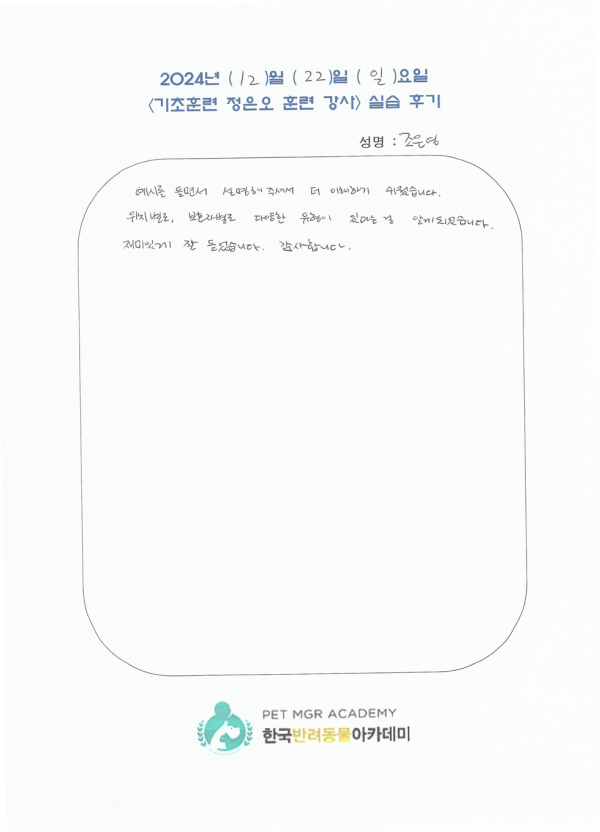 2024년 (12)월 (22)일 (일)요일
<기초훈련 정은오 훈련 강사> 실습 후기
성명 : 조은영
예시를 들면서 설명해주셔서 더 이해하기 쉬웠습니다.
위치별로, 보호자별로 다양한 유형이 있다는걸 알게되었습니다.
재미있게 잘 들었습니다. 감사합니다.
PET MGR ACADEMY
한국반려동물아카데미